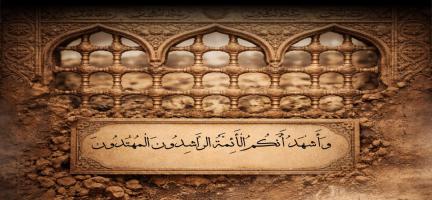 وَأَشْهَدُ أَنَّكُمُ الْأَئِمَّةُ الرَّاشِدُونَ الْمَهْدِيُّونَ